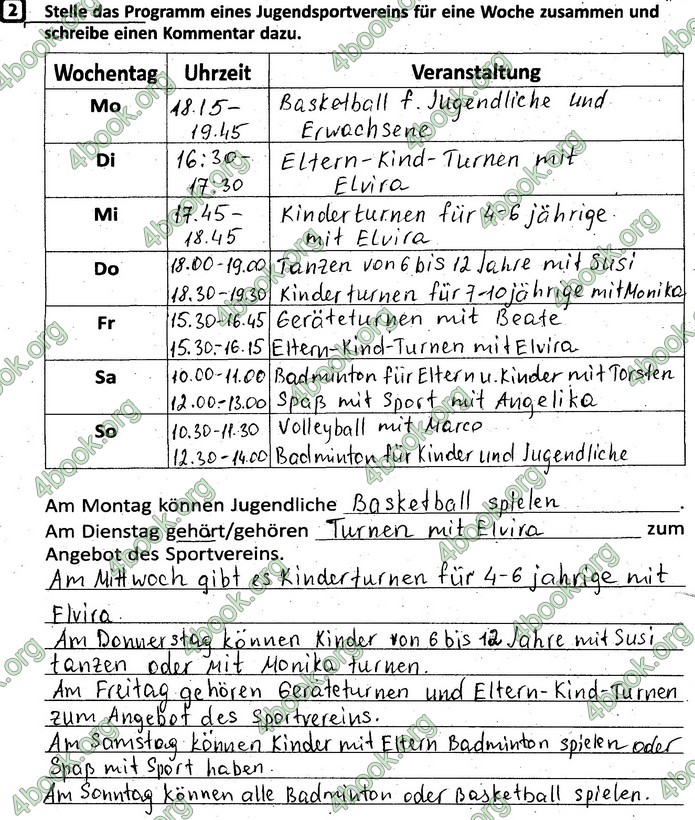 2 Stelle das Programm eines Jugendsportvereins für eine Woche zusammen und
schreibe einen Kommentar dazu.
Wochentag Uhrzeit Veranstaltung
Mo 18.15– Basketball f. Jugendliche und
19.45 Erwachsene
Di 16:30– Eltern-Kind-Turnen mit
17.30 Elvira
Mi 17.45– Kinderturnen für 4-6 jährige
18.45 mit Elvira
Do 18.00-19.00 Tanzen von 6 bis 12 Jahre mit Susi
18.30-19.30 Kinderturnen für 7-10 jährige mit Monika
Fr 15.30-16.45 Geräteturnen mit Beate
15.30-16.15 Eltern-Kind-Turnen mit Elvira
Sa 10.00-11.00 Badminton für Eltern u. Kinder mit Torsten
12.00-13.00 Spaß mit Sport mit Angelika
So 10.30-11.30 Volleyball mit Marco
12.30-14.00 Badminton für Kinder und Jugendliche
Am Montag können Jugendliche Basketball spielen.
Am Dienstag gehört/gehören Turnen mit Elvira zum
Angebot des Sportvereins.
Am Mittwoch gibt es Kinderturnen für 4-6 jahrige mit
Elvira.
Am Donnerstag können Kinder von 6 bis 12 Jahre mit Susi
tanzen oder mit Monika turnen.
Am Freitag gehören Geräteturnen und Eltern-Kind-Turnen
zum Angebot des Sportvereins.
Am Samstag können Kinder mit Eltern Badminton spielen oder
Spaß mit Sport haben.
Am Sonntag können alle Badminton oder Basketball spielen.
4book.org